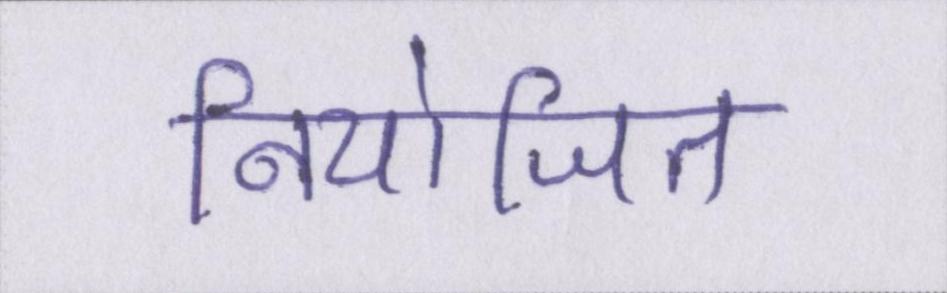 नियोजित